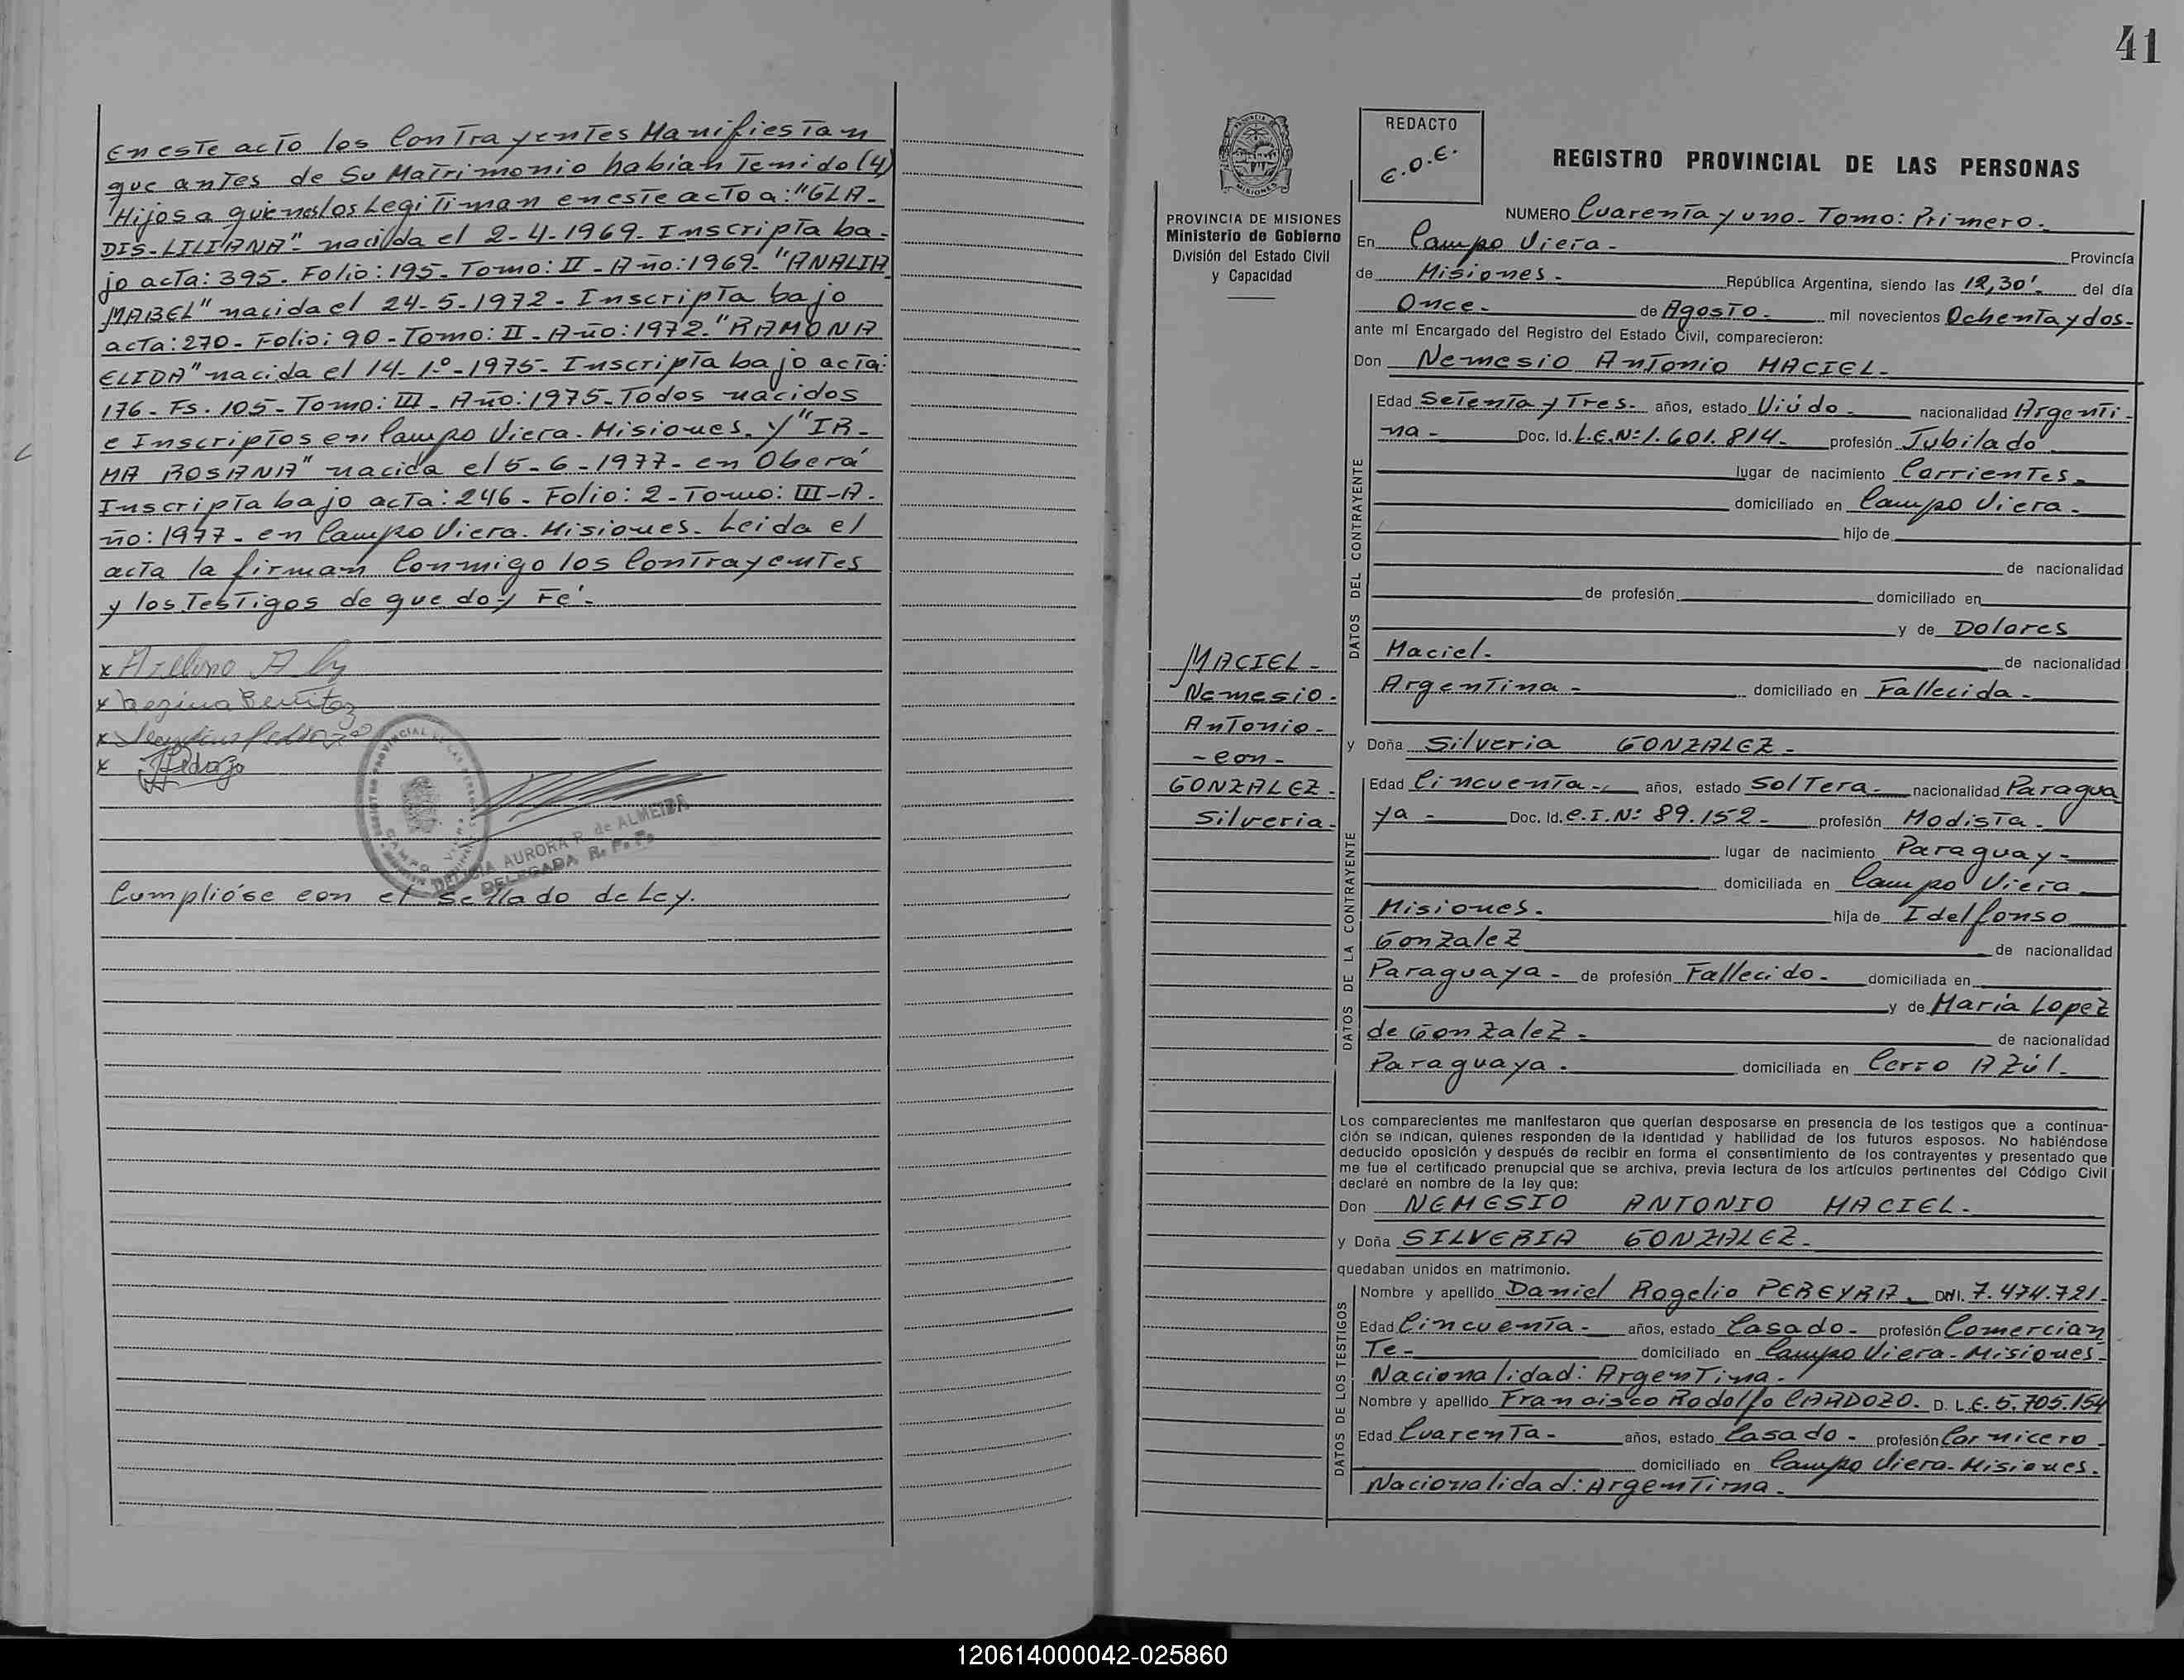 en este acto los Contrayentes Manifiestan
que antes de Su Matrimonio habian Tenido (4)
Hijos a quienes los Legitiman en este acto a: "GLA-
DIS-LILIANA" nacida el 2-4-1969. Inscripta ba-
jo acta: 395. Folio: 195. Tomo: II - Año: 1969. "ANALIA
MABEL" nacida el 24-5-1972. Inscripta bajo
acta: 270 - Folio: 90 - Tomo: II - Año: 1972. "RAMONA
ELIDA" nacida el 14-1º-1975 - Inscripta bajo acta:
176 - Fs. 105 - Tomo: III - Año: 1975 - Todos nacidos
e Inscriptos en Campo Viera. Misiones. y "IR-
MA ROSANA" nacida el 5-6-1977 - en Oberá
Inscripta bajo acta: 246 - Folio: 2 - Tomo: III - A-
ño: 1977 - en Campo Viera. Misiones. Leida el
acta la firman Conmigo los Contrayentes
y los Testigos de que doy Fe'.
x
x Regina Benitez
x
x
AURORA R. de ALMEIDA
DELEGADA R. P. P.
Cumplióse con el Sellado de Ley.
41
REDACTO
C.O.E.
REGISTRO PROVINCIAL DE LAS PERSONAS
PROVINCIA DE MISIONES
Ministerio de Gobierno
División del Estado Civil
y Capacidad
NUMERO Cuarenta y uno - Tomo: Primero.
En Campo Viera - Provincia
de Misiones - República Argentina, siendo las 12,30' del día
Once - de Agosto - mil novecientos Ochenta y dos-
ante mí Encargado del Registro del Estado Civil, comparecieron:
Don Nemesio Antonio MACIEL -
DATOS DEL CONTRAYENTE
Edad Setenta y Tres - años, estado Viúdo - nacionalidad Argenti-
na - Doc. Id. L.E.Nº: 1.601.814 - profesión Jubilado
lugar de nacimiento Corrientes -
domiciliado en Campo Viera -
hijo de
de nacionalidad
de profesión domiciliado en
y de Dolores
Maciel - de nacionalidad
Argentina - domiciliado en Fallecida -
MACIEL -
Nemesio -
Antonio -
- con -
GONZALEZ -
Silveria -
y Doña Silveria GONZALEZ -
DATOS DE LA CONTRAYENTE
Edad Cincuenta - años, estado Soltera - nacionalidad Paragua
ya - Doc. Id. C.I.Nº: 89.152 - profesión Modista -
lugar de nacimiento Paraguay -
domiciliada en Campo Viera
Misiones. hija de Idelfonso
Gonzalez de nacionalidad
Paraguaya - de profesión Fallecido - domiciliada en
y de María Lopez
de Gonzalez - de nacionalidad
Paraguaya - domiciliada en Cerro Azúl -
Los comparecientes me manifestaron que querían desposarse en presencia de los testigos que a continua-
ción se indican, quienes responden de la identidad y habilidad de los futuros esposos. No habiéndose
deducido oposición y después de recibir en forma el consentimiento de los contrayentes y presentado que
me fue el certificado prenupcial que se archiva, previa lectura de los artículos pertinentes del Código Civil
declaré en nombre de la ley que:
Don NEMESIO ANTONIO MACIEL -
y Doña SILVERIA GONZALEZ -
quedaban unidos en matrimonio.
DATOS DE LOS TESTIGOS
Nombre y apellido Daniel Rogelio PEREYRA - DNI. 7.474.721 -
Edad Cincuenta - años, estado Casado - profesión Comercian
Te - domiciliado en Campo Viera - Misiones -
Nacionalidad: Argentina -
Nombre y apellido Francisco Rodolfo CARDOZO. D. L.E. 5.705.154
Edad Cuarenta - años, estado Casado - profesión Carnicero -
domiciliado en Campo Viera - Misiones.
Nacionalidad: Argentina -
120614000042-025860